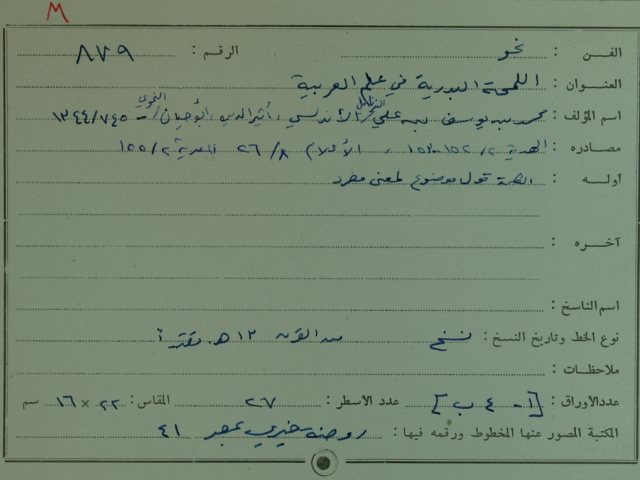 M
الفن : نحو الرقم : ٨٧٩
العنوان : اللمحة البدرية في علم العربية
اسم المؤلف : محمد بن يوسف بن علي الأندلسي ، أثير الدين ، أبو حيان النحوي / - ٧٤٥/١٣٤٤
مصادره : الهدية ٢/ ١٥٢-١٥٣ ، الأعلام ٨/ ٢٦ ٢/ ١٥٥
أولـه : قول موضوع لمعنى مفرد
آخـره :
اسم الناسخ :
نوع الخط وتاريخ النسخ : نسخ من القرن ١٢ هـ . تقديرا
ملاحظات :
عدد الأوراق : [١ - ٤ ب] عدد الأسطر : ٢٧ المقاس : ٢٢ × ١٦ سم
المكتبة المصور عنها المخطوط ورقمه فيها : روضة خيري بمصر ٤١